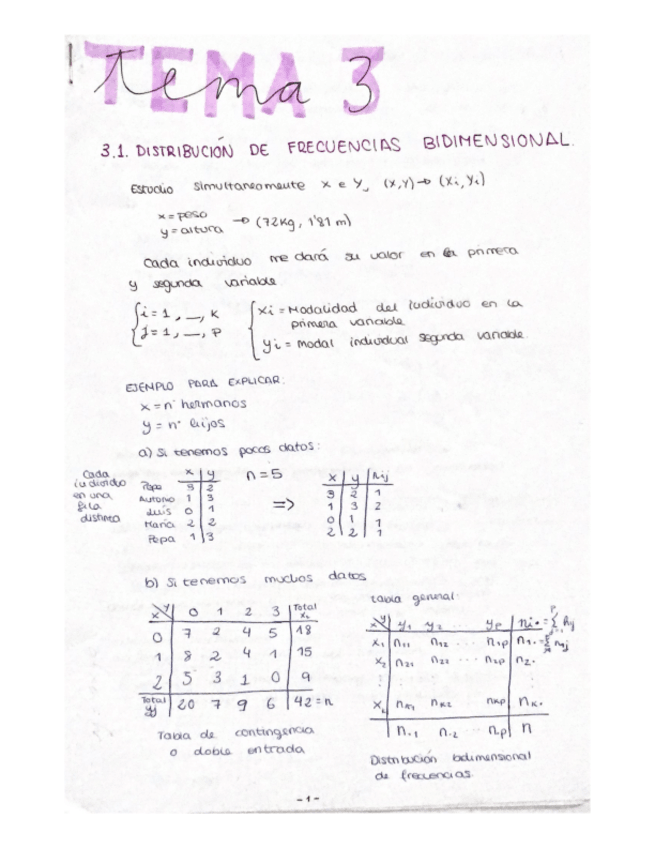 TEMA 3
3.1. DISTRIBUCIÓN DE FRECUENCIAS BIDIMENSIONAL.
Estudio simultaneamente x e y, (x,y)→ (xi, yi)
x = peso
y = altura → (72Kg, 1'81 m)
Cada individuo me dará su valor en la primera
y segunda variable
i = 1, _, K
j = 1, _, P
xi = Modalidad del individuo en la
primera variable
yi = modal individual segunda variable.
EJEMPLO PARA EXPLICAR:
x = nº hermanos
y = nº hijos
a) Si tenemos pocos datos:
Cada
individuo
en una
fila
distinta
x y
Pepe 3 2
Antonio 1 3
Luis 0 1
María 2 2
Pepa 1 3
n = 5
=>
x y nij
3 2 1
1 3 2
0 1 1
2 2 1
b) Si tenemos muchos datos
x y 0 1 2 3 Total
0 7 2 4 5 18
1 8 2 4 1 15
2 5 3 1 0 9
Total 20 7 9 6 42 = n
Tabla de contingencia
o doble entrada
tabla general:
x y y1 y2 ... yp ni• = Σ nij
x1 n11 n12 ... n1p n1•
x2 n21 n22 ... n2p n2•
xk nk1 nk2 nkp nk•
n•1 n•2 ... n•p n
Distribución bidimensional
de frecuencias.
-1-